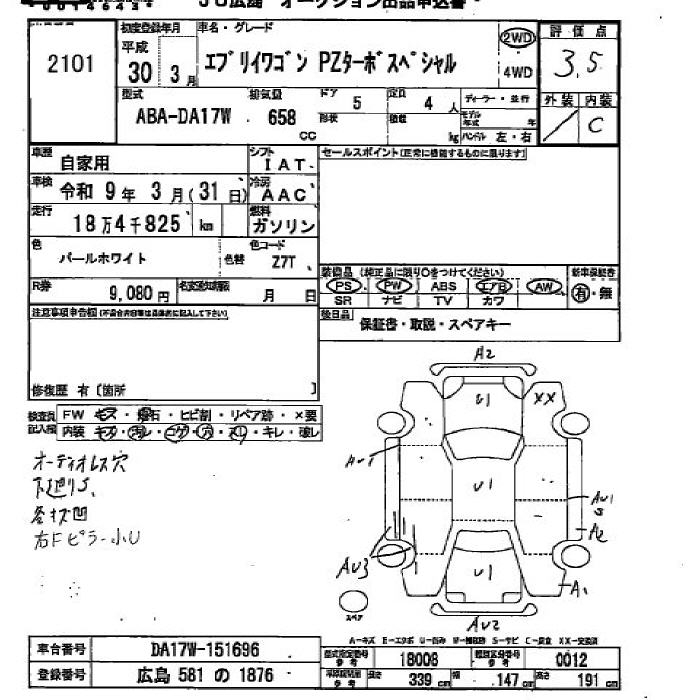 JU広島 オークション出品申込書
2101
初度登録年月 平成 30年 3月
車名・グレード
エブリイワゴン PZターボスペシャル
2WD
4WD
評価点
3.5
外装 内装
C
型式 ABA-DA17W
排気量 658 CC
ドア 5
形状
定員 4人
積載 kg
ディーラー・並行
モデル年式 年
ハンドル 左・右
車歴 自家用
シフト IAT
車検 令和 9年 3月(31日)
冷房 AAC
走行 18万4千825 km
燃料 ガソリン
色 パールホワイト
色替
色コード Z7T
R券 9,080円
名変通知期限 月 日
セールスポイント(正常に機能するものに限ります)
装備品(純正品に限り○をつけてください)
新車保証書
PS PW ABS エアB AW 有・無
SR ナビ TV カワ
後日品 保証書・取説・スペアキー
注意事項申告欄(不具合内容等は具体的に記入して下さい)
修復歴 有〔箇所 〕
検査員記入欄
FW キズ・飛石・ヒビ割・リペア跡・×要
内装 キズ・汚レ・コゲ・穴・スレ・キレ・破レ
オーディオレス穴
下廻りS、
各キズ凹
右Fピラー小U
A2
U1
XX
AU1
U1
AU1
S
A2
AU3
U1
A1
AU2
スペア
A-キズ E-エクボ U-凹み W-補修跡 S-サビ C-腐食 XX-交換済
車台番号 DA17W-151696
登録番号 広島 581 の 1876
型式指定番号 参考 18008
類別区分番号 参考 0012
長さ 339 cm
幅 147 cm
高さ 191 cm